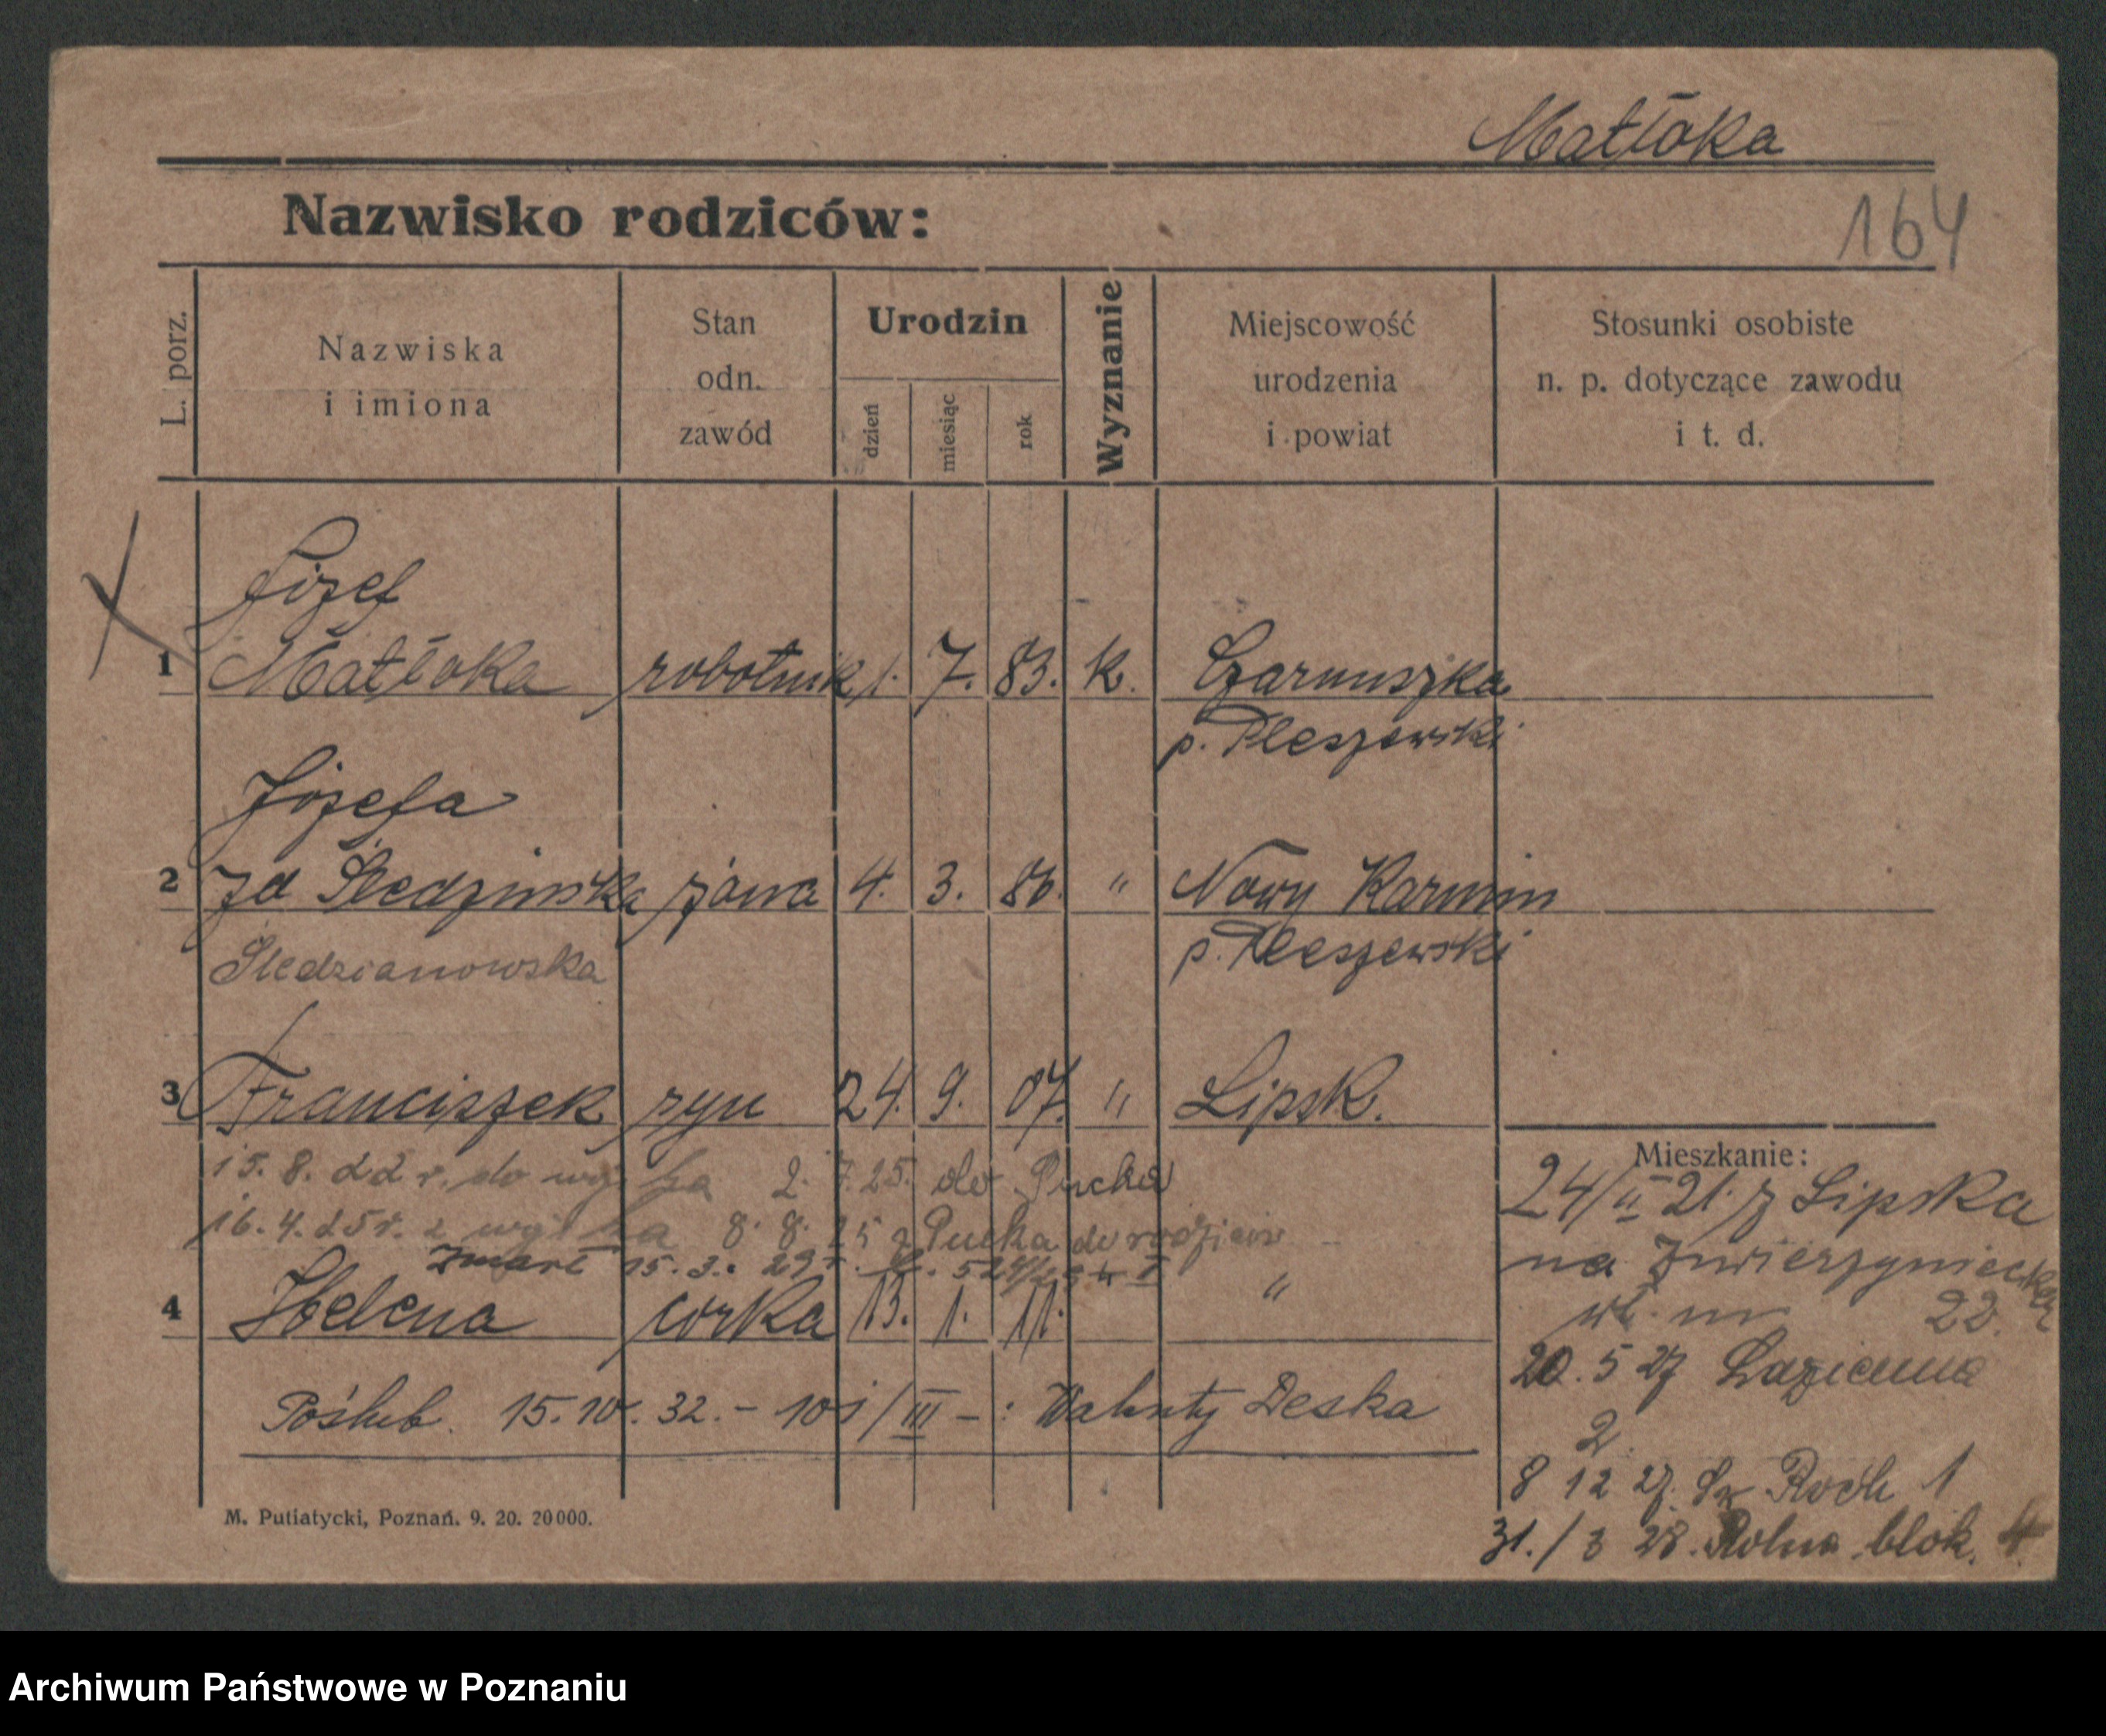 Matłoka
164
Nazwisko rodziców:
L. porz.
Nazwiska
i imiona
Stan
odn.
zawód
Urodzin
dzień
miesiąc
rok
Wyznanie
Miejscowość
urodzenia
i powiat
Stosunki osobiste
n. p. dotyczące zawodu
i t. d.
Józef
1 Matłoka robotnik 1. 7. 83. k. Czarnuszka
p. Pleszewski
Józefa
2 zd Śledzinska żona 4. 3. 86. " Nowy Karmin
Sledzianowska p. Pleszewski
3 Franciszek syn 24. 9. 07. " Lipsk.
15. 8. 22 r. do 2. 7. 25. do Pucka
16. 4. 25 r. z 8. 8. 25 z Pucka do rodziców
zmarł 15. 3. 29 r.
4 Helena corka 13. 1. 11. "
Poślub. 15. 10. 32. – 101/III – : Walenty Deska
Mieszkanie:
24/II 21. z Lipska
na Zwierzyniecką
nr 22.
20. 5 27 Łazienna
2
8 12 27. Sw Roch 1
31./3 28. Rolna blok. 4
M. Putiatycki, Poznań. 9. 20. 20000.
Archiwum Państwowe w Poznaniu